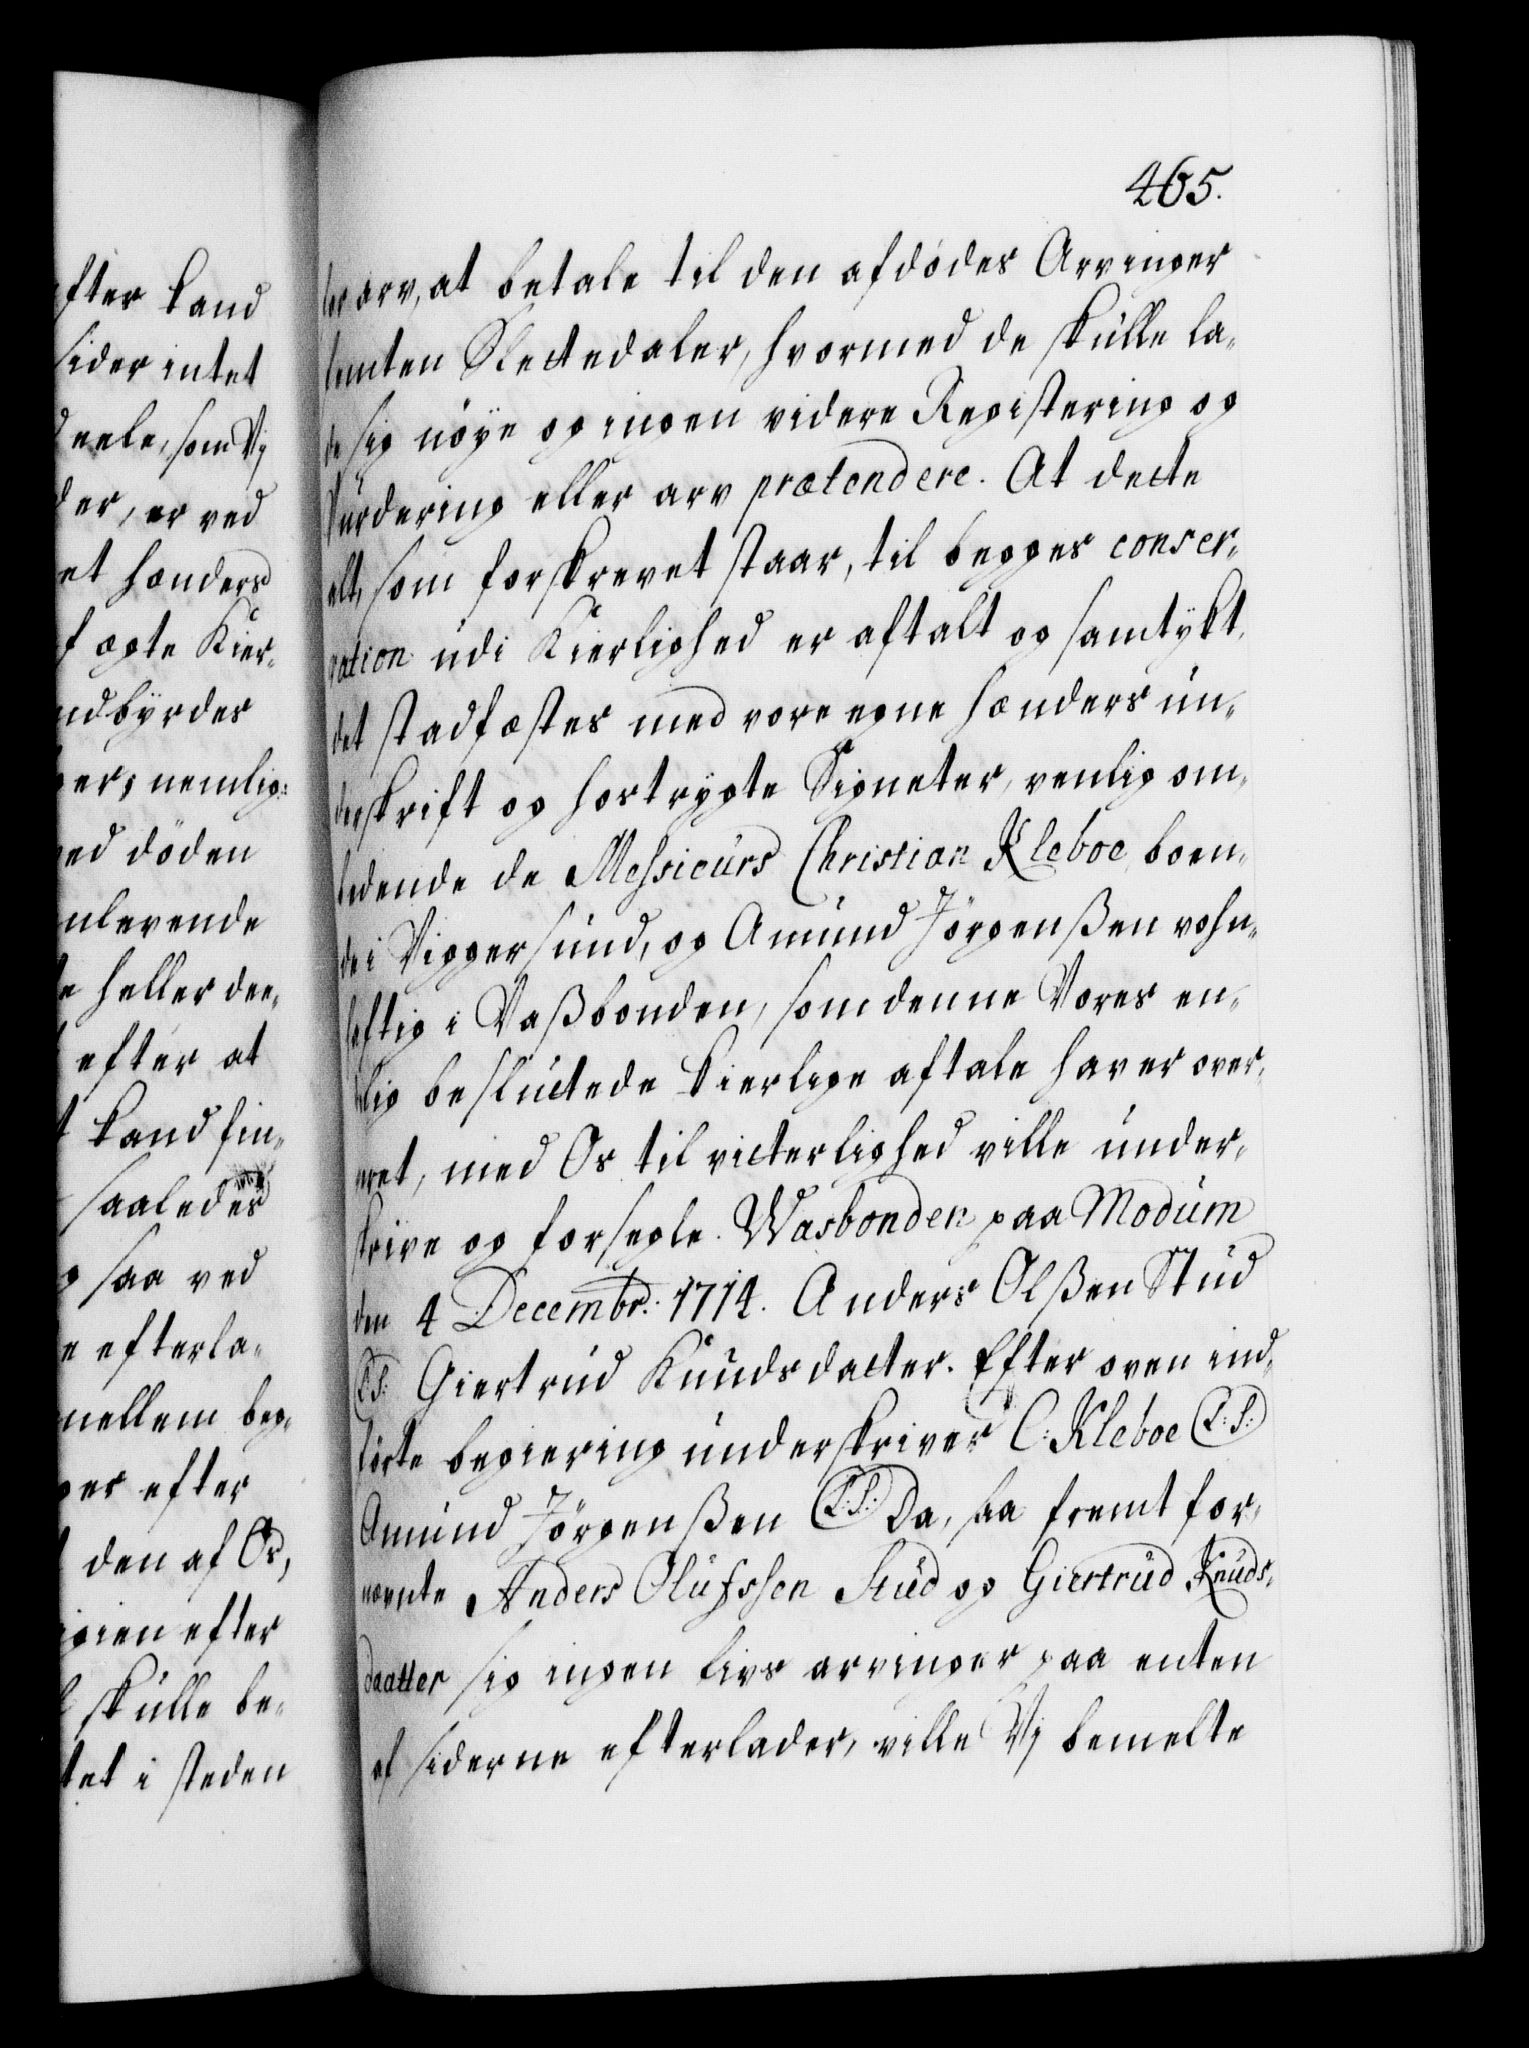 fter kand
sider intet
deele, som Vj
der, er ved
et hænders
f ægte Kier-
ndbyrdes
ger, nemlig:
ved döden
nlevende
e heller dee-
efter at
t kand fin-
saaledes
g saa ved
e efterla-
mellem beg-
ger efter
den af Os,
igien efter
l skulle be-
tet i steden
465.
for arv, at betale til den afdödes Arvinger
femten Slectedaler, hvormed de skulle la-
de sig nöye og ingen videre Registering og
Vurdering eller arv prætendere. At dette
alt, som forskrevet staar, til begges conser-
vation udi Kierlighed er aftalt og samtykt,
det stadfæstes med vore egne hænders un-
derskrift og hostrygte Signeter, venlig om-
bedende de Messieurs Christian Kleboe, boen-
de i Viggersund, og Amund Jörgenßen vohn-
haftig i Vaßbonden, som denne Vores en-
delig besluttede kierlige aftale haver over-
veret, med Os til vitterlighed ville under-
skrive og forsegle. Wasbonden paa Modum
den 4 Decembr: 1714. Anders Olßen Stud
L:S: Giertrud Knudsdatter. Efter oven ind-
förte begiering underskriver C: Kleboe L:S:
Amund Jörgenßen L:S: Da, saa fremt for-
nævnte Anders Olufssen Stud og Giertrud Knuds-
daatter sig ingen livs arvinger paa enten
af siderne efterlader, ville Vj bemelte